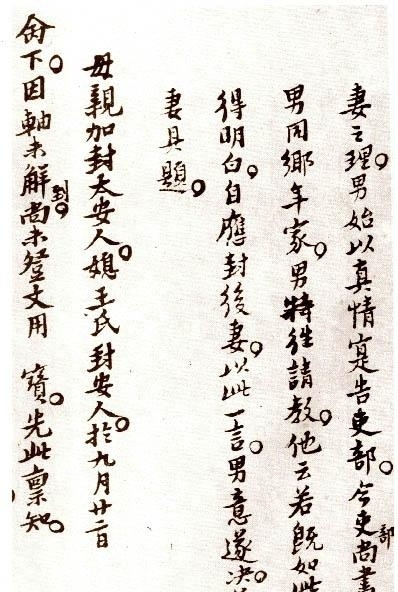 妻之理。男始以真情寔告吏部。今吏部尚書
男同鄉年家。男特徃請教。他云若既如此
得明白。自應封後妻。以此一言。男意遂决。
妻具題。
母親加封太安人。媳王氏封安人。於九月廿二日
命下。因軸未解到。尚未登文用 寶。先此禀知。